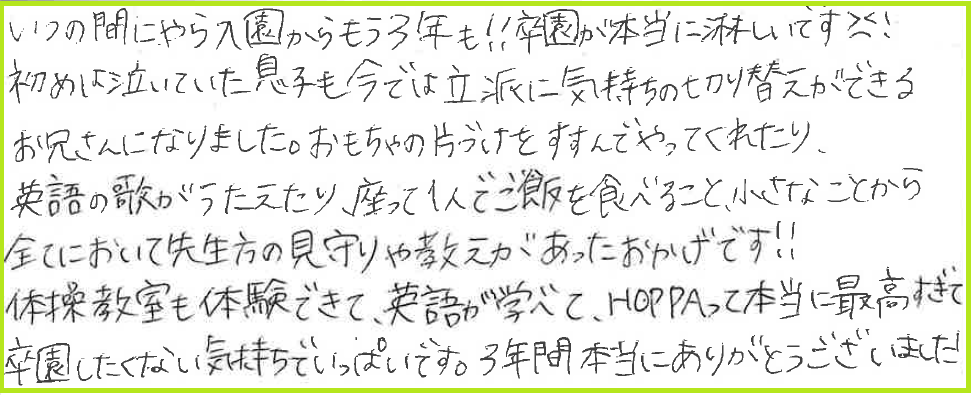 いつの間にやら入園からもう3年も!!卒園が本当に淋しいです><!
初めは泣いていた息子も今では立派に気持ちの切り替えができる
お兄さんになりました。おもちゃの片づけをすすんでやってくれたり、
英語の歌がうたえたり、座って1人でご飯を食べること、小さなことから
全てにおいて先生方の見守りや教えがあったおかげです!!
体操教室も体験できて、英語が学べて、HOPPAって本当に最高すぎて
卒園したくない気持ちでいっぱいです。3年間本当にありがとうございました!